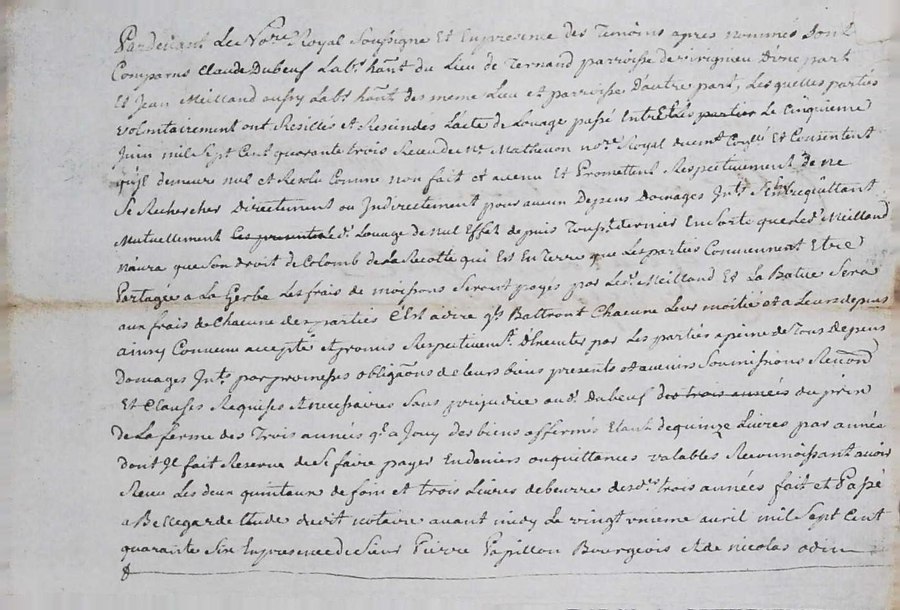 Pardevant Le Nore Royal Soussigné Et En presence des Temoins apres nommés Sont
Comparus Claude Dubeuf Labr habnt du Lieu de Ternand parroisse de virigneu D'une part
Et Jean Meilland aussy Labr habnt des meme Lieu et parroisse D'autre part, Lesquelles parties
volontairement ont Resilliés et Rescindés L'acte de Louage passé Entre Les parties Le Cinquieme
Juin mil Sept Cent quarante trois Receu de Me Mathevon nore Royal Et Consentent
qu'il demeure nul et Resolu Comme non fait et avenu Et Promettent Respectivement de ne
Se Rechercher Directement ou Indirectement pour aucun Depens Domages Intts
Mutuellement led. Louage de nul Effet depuis dernier En Sorte que Led. Meilland
n'aura que Son droit de Colomb de La Recolte qui Est En Terre que Les parties Conviennent Etre
Partagée a La Gerbe Les frais de moissons Seront payés par Led. Meilland Et La Batue Sera
aux frais de Chacune des parties C'Est a dire qls Battront Chacune Leur moitié et a Leurs depens
ainsy Convenu accepté et promis Respectivemt D'Executer par Les parties a peine de Tous Depens
Domages Intts par promesses obligaõns de leurs biens presents et avenirs Soumissions Renonõn
Et Clauses Requises et necessaires Sans prejudice aud. Dubeuf des trois années du prix
de La ferme des Trois années ql a Jouy des biens affermés Etant de quinze Livres par année
dont Il fait Reserve de Se faire payer En deniers ou quittances valables Reconnoissant avoir
Receu Les deux quintaux de foin et trois Livres de beurre desd. trois années fait et Passé
a Bellegarde Etude dud. notaire avant midy Le vingt unieme avril mil Sept Cent
quarante Six En presence de Sieur Pierre Papillon Bourgeois et de nicolas odin